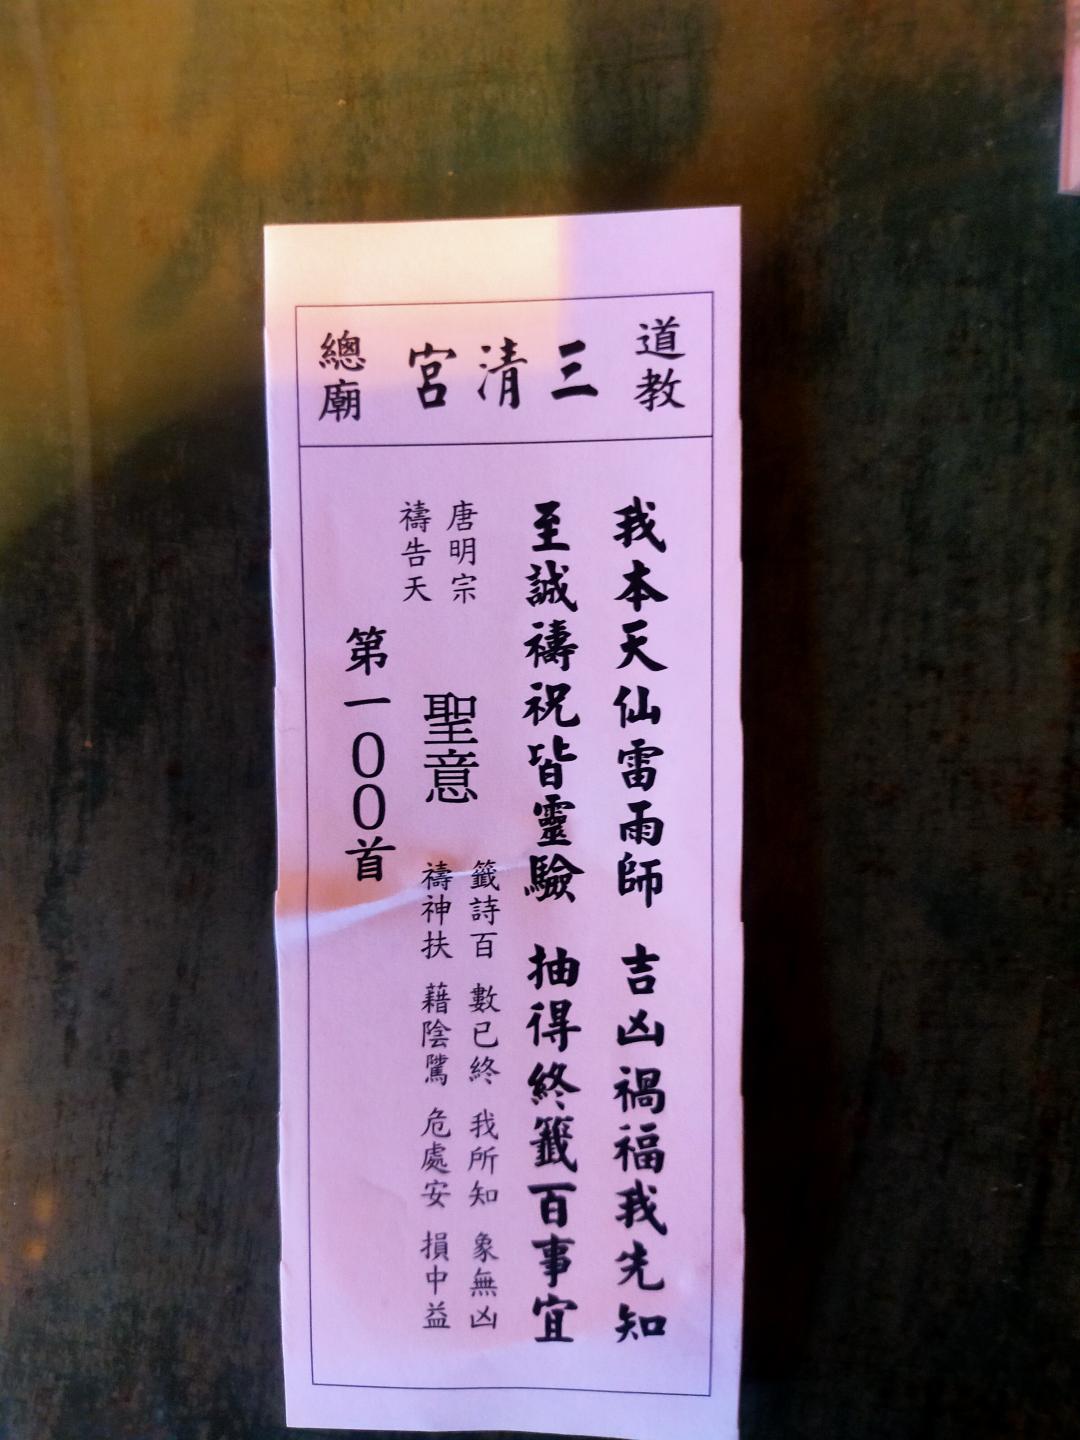 道教
三清宮
總廟
我本天仙雷雨師 吉凶禍福我先知
至誠禱祝皆靈驗 抽得終籤百事宜
唐明宗
禱告天
聖意
籤詩百 數已終 我所知 象無凶
禱神扶 藉陰騭 危處安 損中益
第一００首